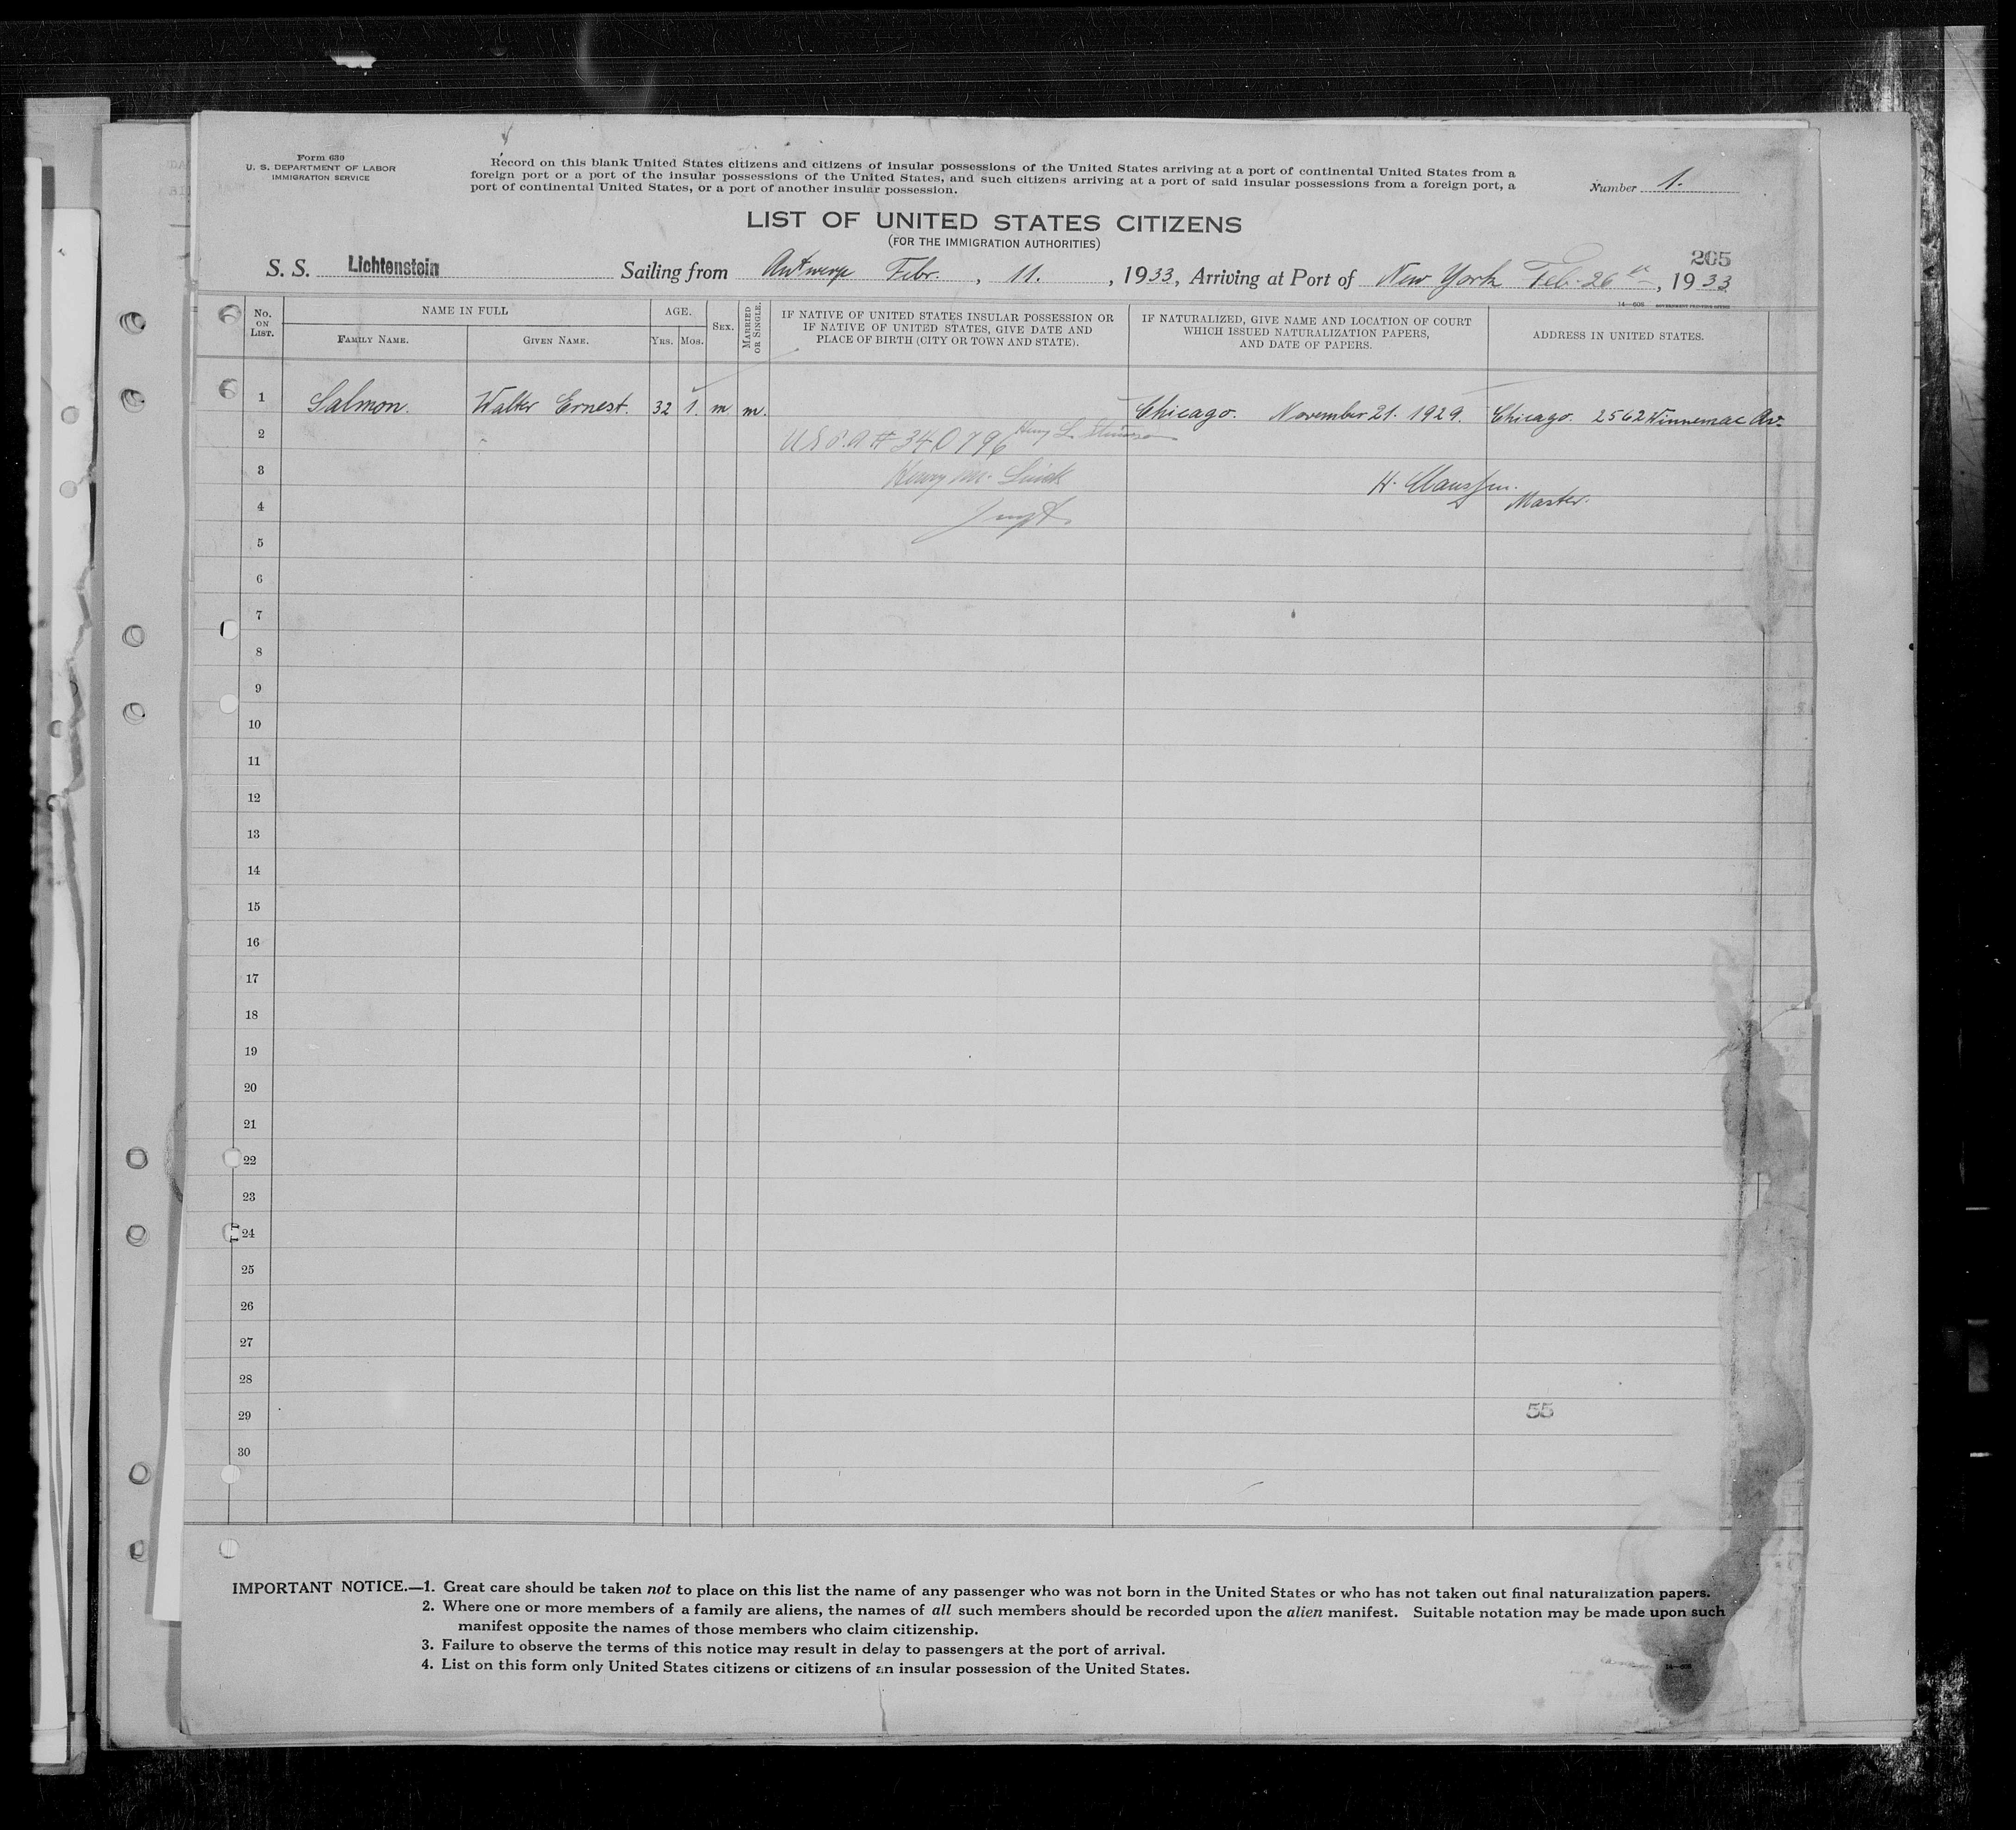 Form 630
U. S. DEPARTMENT OF LABOR
IMMIGRATION SERVICE
Record on this blank United States citizens and citizens of insular possessions of the United States arriving at a port of continental United States from a
foreign port or a port of the insular possessions of the United States, and such citizens arriving at a port of said insular possessions from a foreign port, a
port of continental United States, or a port of another insular possession.
Number 1.
LIST OF UNITED STATES CITIZENS
(FOR THE IMMIGRATION AUTHORITIES)
205
S. S. Lichtenstein Sailing from Antwerp Febr. , 11. , 1933, Arriving at Port of New York Feb. 26th , 1933
14—608 GOVERNMENT PRINTING OFFICE
No. ON LIST.
NAME IN FULL
FAMILY NAME.
GIVEN NAME.
AGE.
YRS. MOS.
SEX.
MARRIED OR SINGLE.
IF NATIVE OF UNITED STATES INSULAR POSSESSION OR
IF NATIVE OF UNITED STATES, GIVE DATE AND
PLACE OF BIRTH (CITY OR TOWN AND STATE).
IF NATURALIZED, GIVE NAME AND LOCATION OF COURT
WHICH ISSUED NATURALIZATION PAPERS,
AND DATE OF PAPERS.
ADDRESS IN UNITED STATES.
1 Salmon. Walter Ernest. 32 1. m m. Chicago. November 21. 1929. Chicago. 2562 Winnemac Av.
2 USPA # 340796 Henry L. Stimson
3 Henry M.
H. Claussen.
Master.
4 Inspt.
5
6
7
8
9
10
11
12
13
14
15
16
17
18
19
20
21
22
23
24
25
26
27
28
29
55
30
IMPORTANT NOTICE.—1. Great care should be taken not to place on this list the name of any passenger who was not born in the United States or who has not taken out final naturalization papers.
2. Where one or more members of a family are aliens, the names of all such members should be recorded upon the alien manifest. Suitable notation may be made upon such
manifest opposite the names of those members who claim citizenship.
3. Failure to observe the terms of this notice may result in delay to passengers at the port of arrival.
4. List on this form only United States citizens or citizens of an insular possession of the United States.
14—608